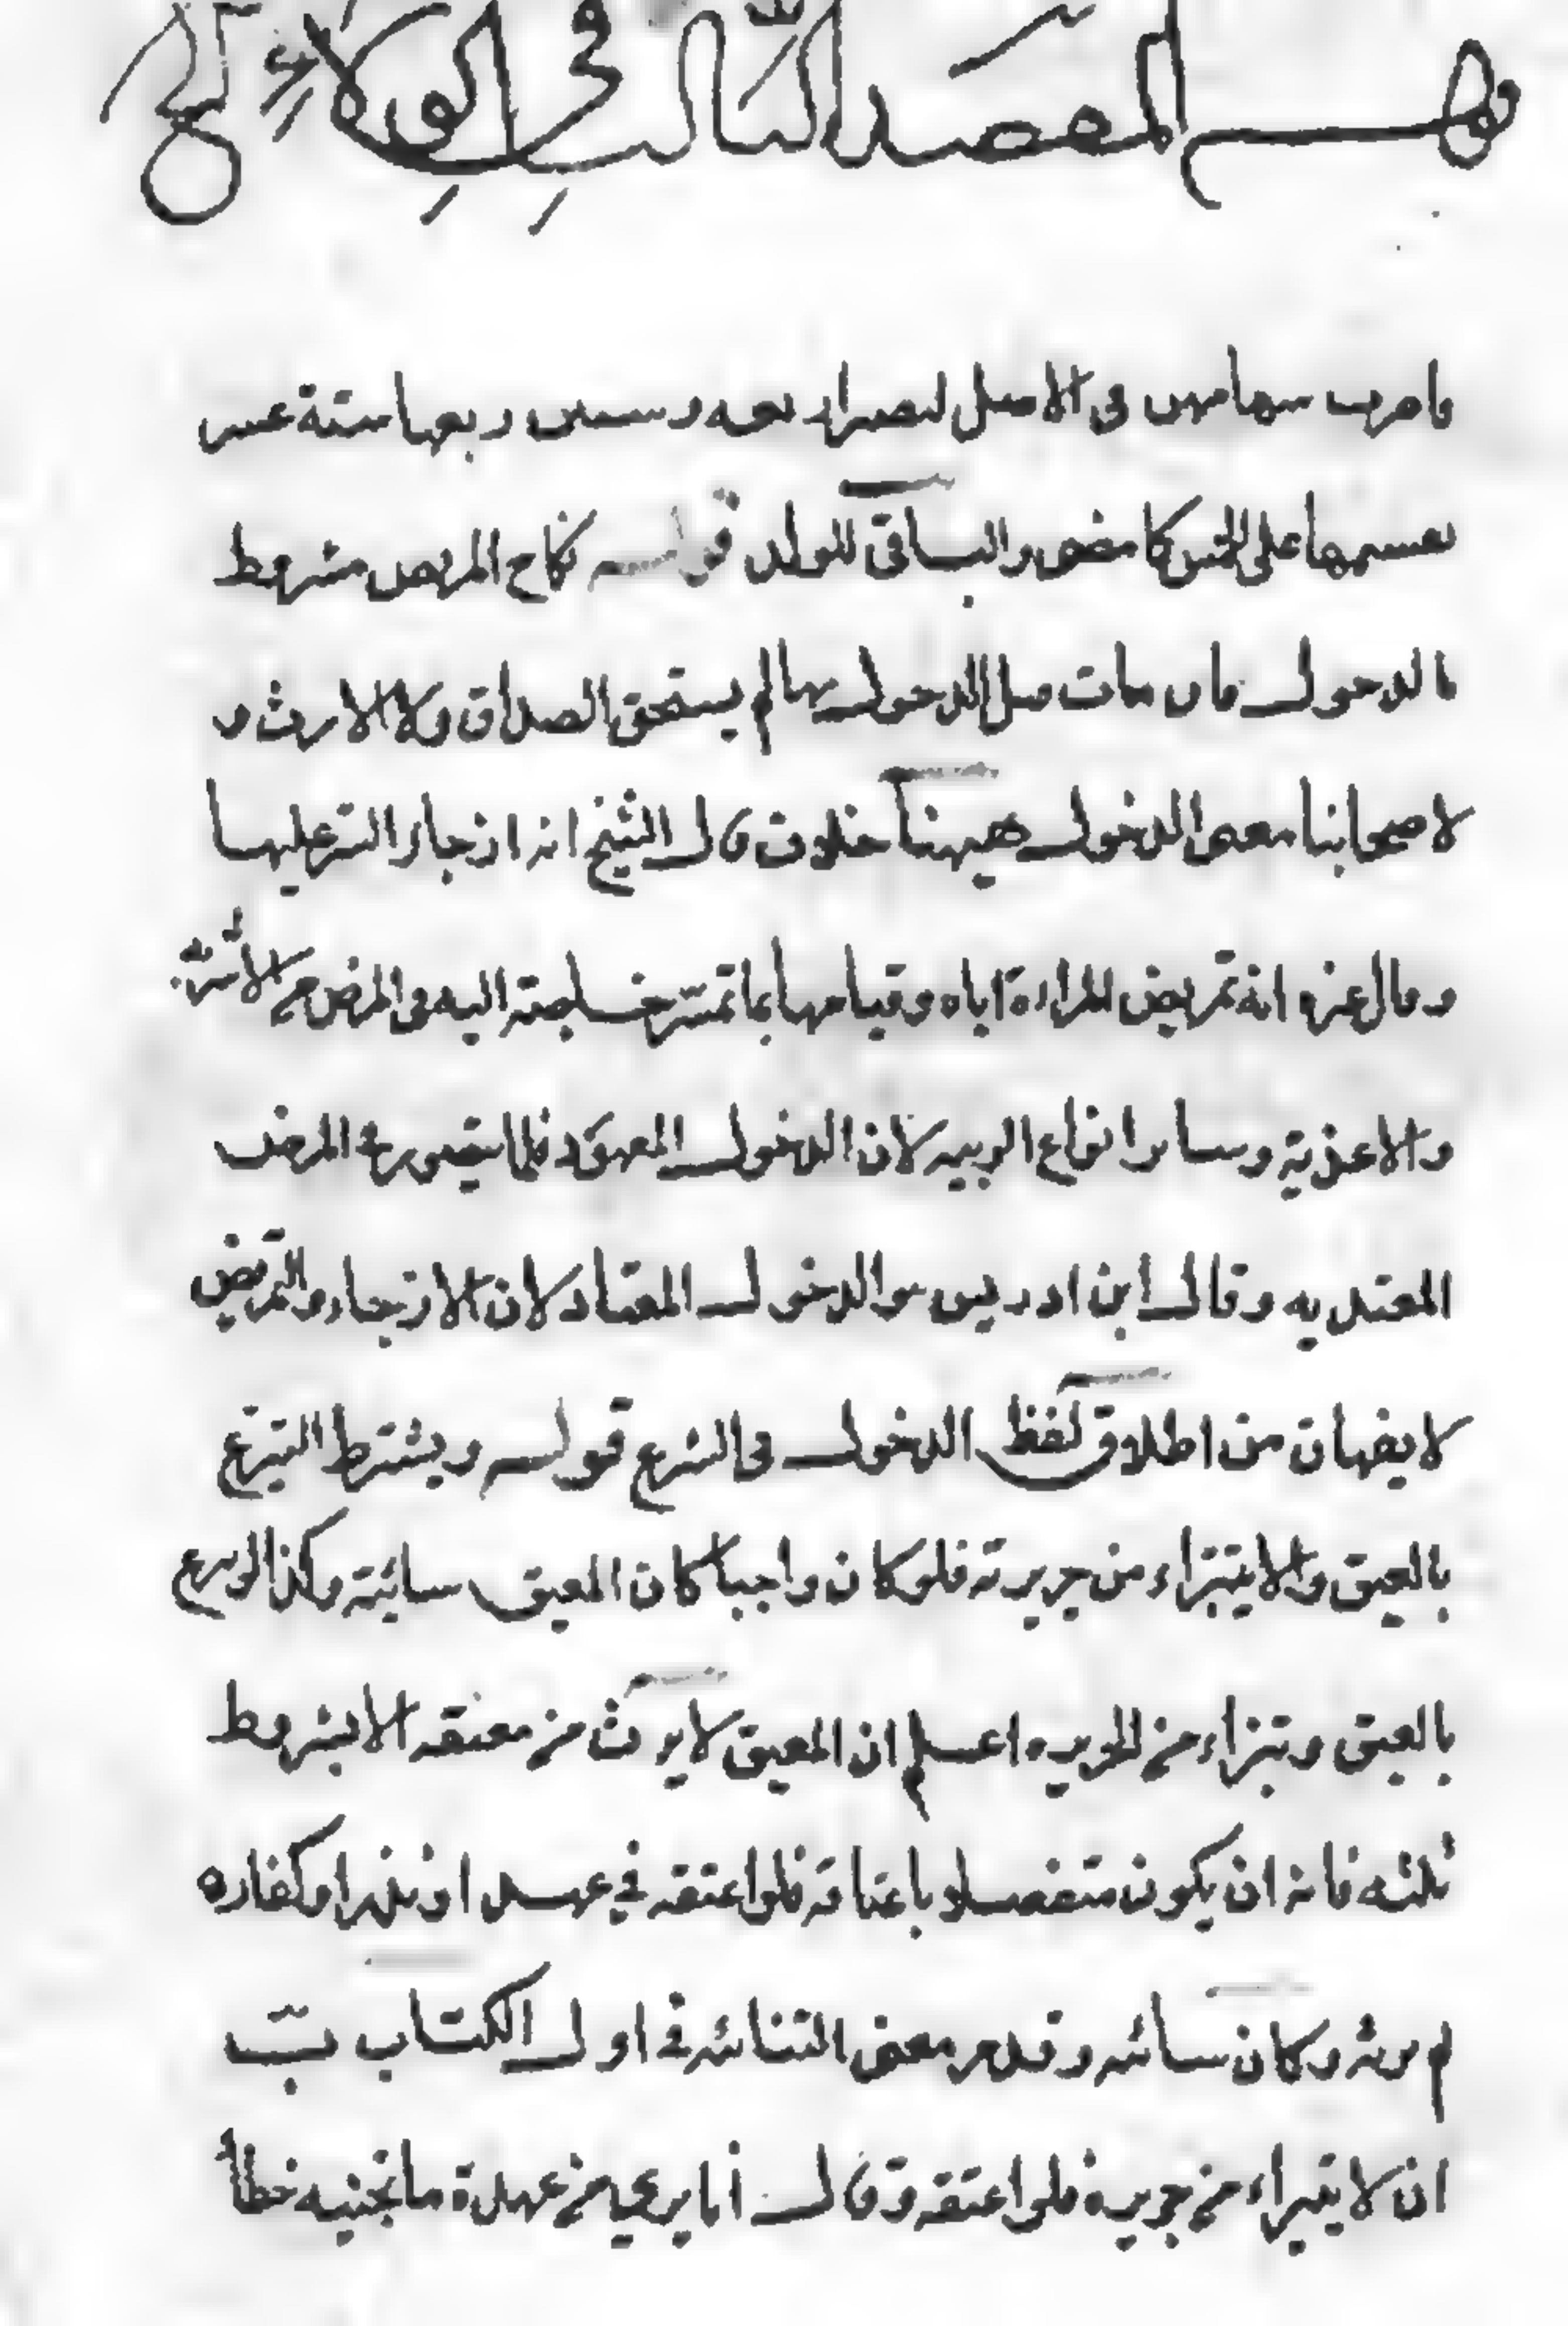 المقصد الثالث في الولاء
فاضرب سهامهن في الاصل لتصير اربعه وستين ربعها ستة عشر
تقسمها على الخمس كما مضى والباقي للولد قوله نكاح المريض مشروط
بالدخول فان مات قبل الدخول بها لم يستحق الصداق ولا الارث و
لاصحابنا معنى الدخول ههنا خلاف قال الشيخ انه ارخاء الستر عليها
وقال غيره انه تمريض المراءة اياه وقيامها بما تمسّ حاجته اليه في المرض من الاشربة
والاغذية وساير انواع التربيه لان الدخول المعهود قلما يتصور في المرض
المعتد به وقال ابن ادريس هو الدخول المعتاد لان الارخاء والتمريض
لا يفهمان من اطلاق لفظ الدخول في الشرع قوله ويشترط التبرع
بالعتق والا يتبراء من جريرته فلو كان واجبا كان المعتق سائبة وكذا لو تبرع
بالعتق وتبراء من الجريره اعلم ان المعتق لا يرث من معتقه الا بشروط
ثلثه فانه ان يكون متفضلا باعتاقه فلو اعتقه في عهد او نذر او كفاره
لم يرثه وكان سائبه وقد مر معنى السائبه في اول الكتاب ب
ان لا يتبراء من جريره فلو اعتقه وقال أنا بريء من عهدة ما تجنيه خطأ